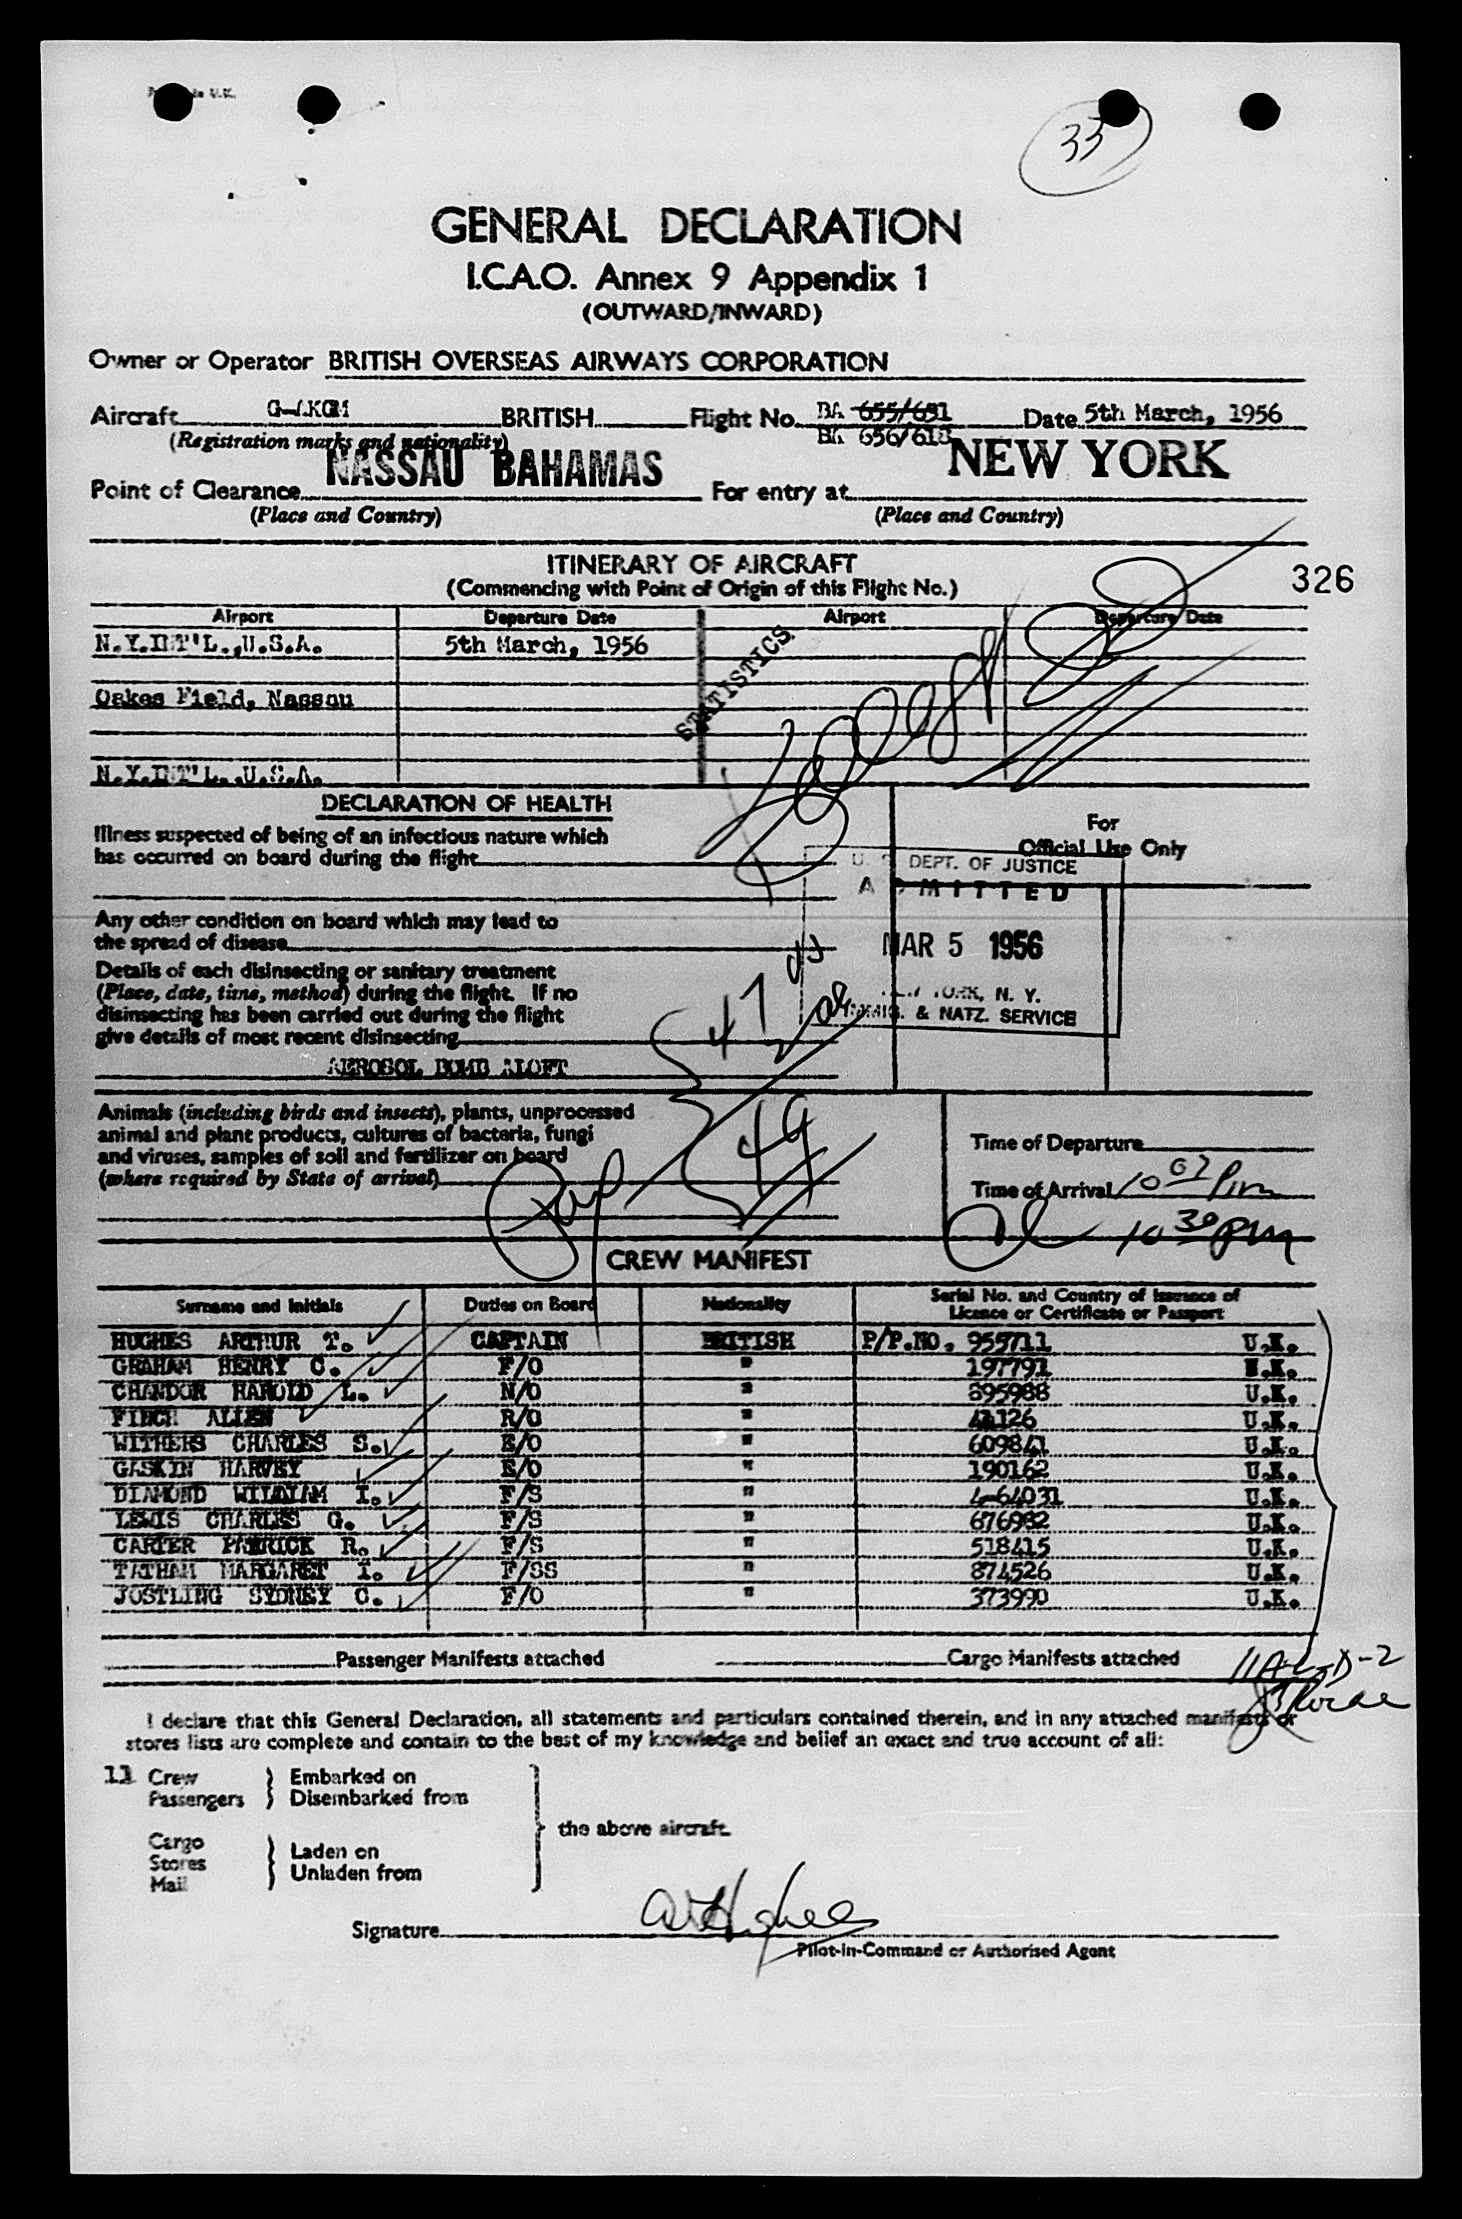 33
GENERAL DECLARATION
I.C.A.O. Annex 9 Appendix 1
(OUTWARD/INWARD)
Owner or Operator BRITISH OVERSEAS AIRWAYS CORPORATION
Aircraft BRITISH Flight No. BA 655/691 Date 5th March, 1956
(Registration marks and nationality) BA 656/618
NASSAU BAHAMAS NEW YORK
Point of Clearance For entry at
(Place and Country) (Place and Country)
ITINERARY OF AIRCRAFT
326
(Commencing with Point of Origin of this Flight No.)
Airport Departure Date Airport Departure Date
N.Y.INT'L.,U.S.A. 5th March, 1956
STATISTICS
Oakes Field, Nassau
N.Y.INT'L.,U.S.A.
DECLARATION OF HEALTH
For
Official Use Only
Illness suspected of being of an infectious nature which
has occurred on board during the flight
U. S. DEPT. OF JUSTICE
ADMITTED
Any other condition on board which may lead to
the spread of disease
MAR 5 1956
Details of each disinsecting or sanitary treatment
(Place, date, time, method) during the flight. If no
disinsecting has been carried out during the flight
give details of most recent disinsecting
NEW YORK, N. Y.
IMMIG. & NATZ. SERVICE
47
AEROSOL BOMB ALOFT
Animals (including birds and insects), plants, unprocessed
animal and plant products, cultures of bacteria, fungi
and viruses, samples of soil and fertilizer on board
(where required by State of arrival)
49
Time of Departure
Time of Arrival 10 02 Pm
10 30 pm
CREW MANIFEST
Surname and Initials Duties on Board Nationality Serial No. and Country of Issuance of Licence or Certificate or Passport
HUGHES ARTHUR T. CAPTAIN BRITISH P/P.NO. 959711 U.K.
GRAHAM HENRY C. F/O " 197791 U.K.
CHANDOR HAROLD L. N/O " 895988 U.K.
FINCH ALLEN R/O " U.K.
WITHERS CHARLES S. E/O " 609841 U.K.
GASKIN HARVEY E/O " 190162 U.K.
DIAMOND WILLIAM I. F/S " 4-64031 U.K.
LEWIS CHARLES G. F/S " 676982 U.K.
CARTER PATRICK R. F/S " 518415 U.K.
TATHAM MARGARET I. F/SS " 874526 U.K.
JOSTLING SYDNEY C. F/O " 373990 U.K.
Passenger Manifests attached Cargo Manifests attached
I declare that this General Declaration, all statements and particulars contained therein, and in any attached manifests or
stores lists are complete and contain to the best of my knowledge and belief an exact and true account of all:
11 Crew } Embarked on
Passengers } Disembarked from
the above aircraft.
Cargo
Stores } Laden on
Mail } Unladen from
Signature
Pilot-in-Command or Authorised Agent